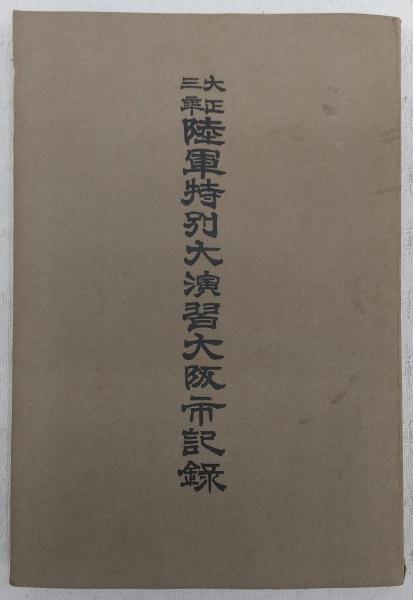 大正三年
陸軍特別大演習大阪市記録